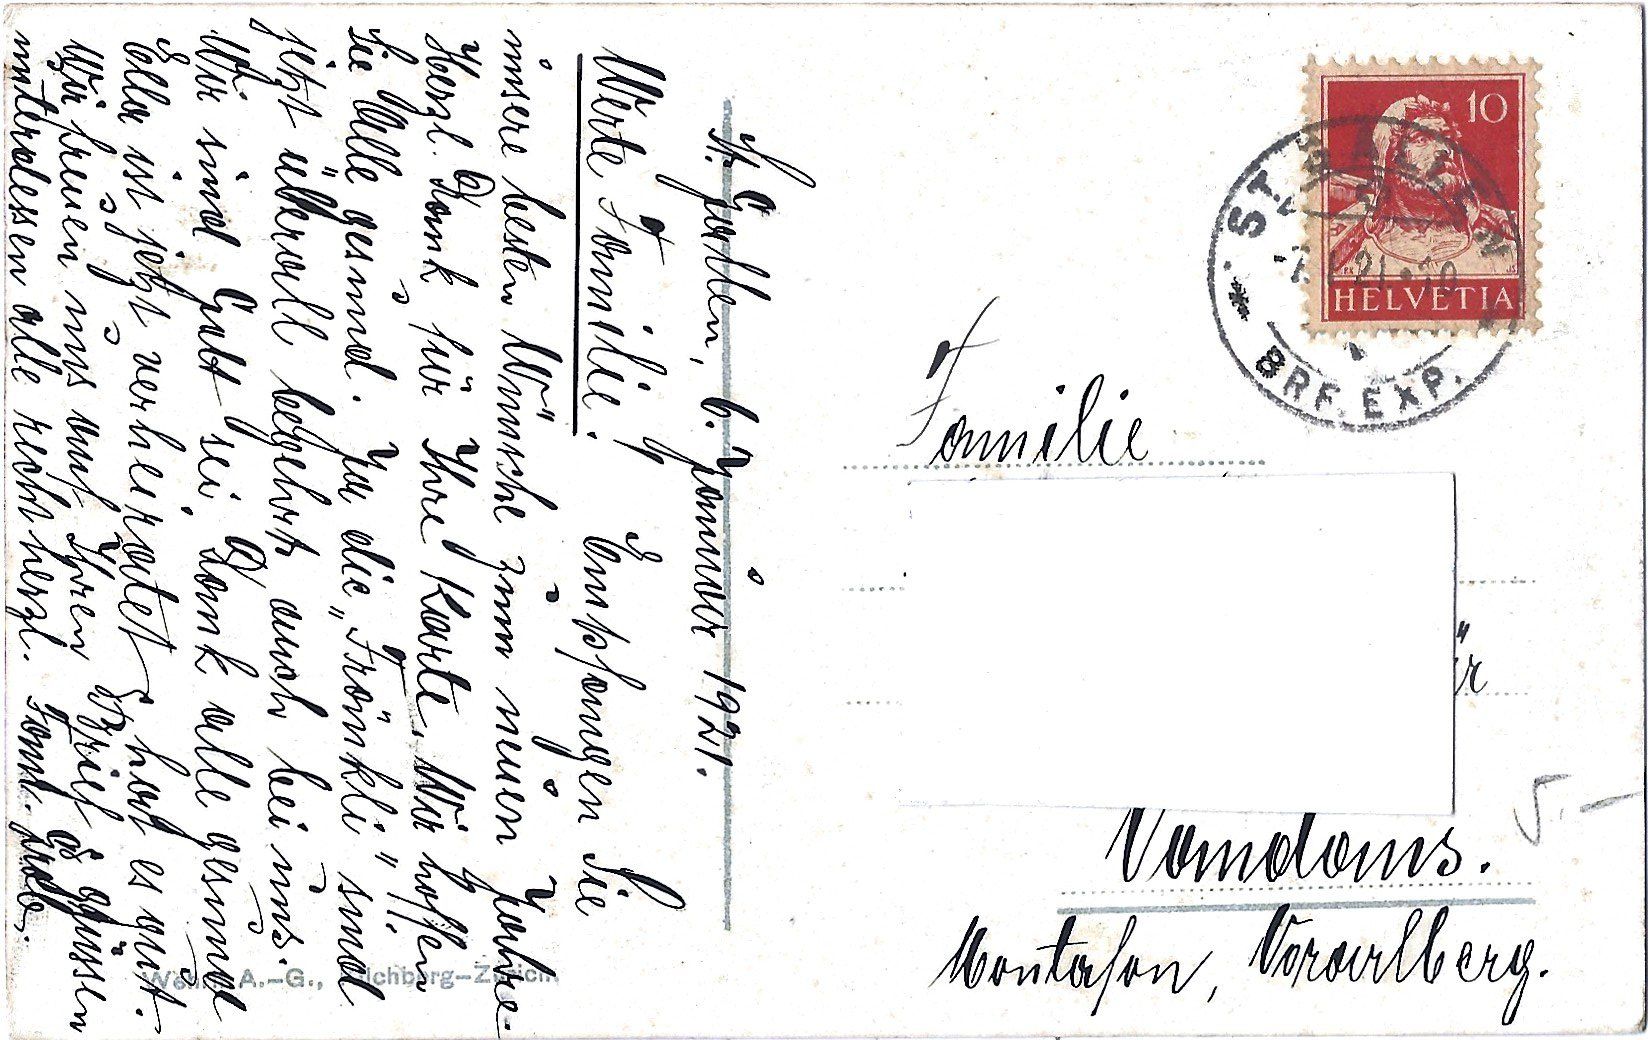 St. Gallen, 6. Januar 1921.
Werte Familie! Empfangen Sie
unsere besten Wünsche zum neuen Jahre.
Herzl. Dank für Ihre Karte, Wir hoffen
Sie Alle gesund. Ja die „Fränkli" sind
jetzt überall begehrt auch bei uns.
Wir sind Gott sei Dank alle gesund
Ella ist jetzt verheiratet, hat es gut.
Wir freuen uns auf Ihren Brief & grüssen
unterdessen alle recht herzl. Fam.
10
HELVETIA
ST. GALLEN
21
BRF. EXP.
Familie
Vandans.
Montafon, Vorarlberg.
5.–
A.–G., Kilchberg–Zürich